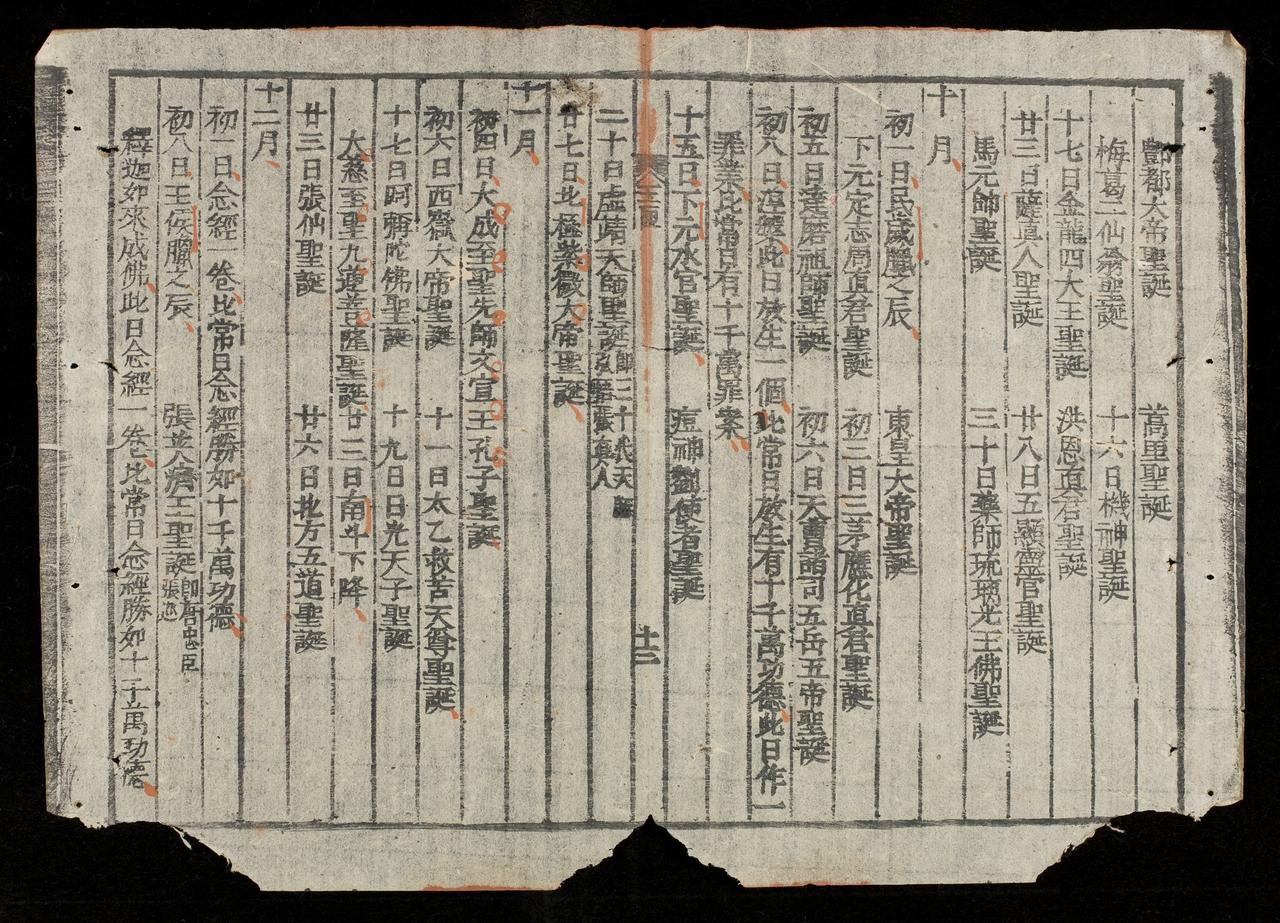 酆都大帝聖誕 萬里聖誕
梅葛二仙翁聖誕 十六日機神聖誕
十七日金龍四大王聖誕 洪恩真君聖誕
廿三日薩真人聖誕 廿八日五顯靈官聖誕
馬元帥聖誕 三十日藥師琉璃光王佛聖誕
十月
初一日民歲臘之辰 東皇大帝聖誕
下元定志周真君聖誕 初三日三茅應化真君聖誕
初五日達磨祖師聖誕 初六日天曹諸司五岳五帝聖誕
初八日涅槃此日放生一個比常日放生有十千萬功德此日作一
罪業比常日有十千萬罪案
十五日下元水官聖誕 痘神劉使者聖誕
十二
二十日虛靖天師聖誕即三十代天師弘悟張真人
廿七日北極紫微大帝聖誕
十一月
初四日大成至聖先師文宣王孔子聖誕
初六日西嶽大帝聖誕 十一日太乙救苦天尊聖誕
十七日阿彌陀佛聖誕 十九日日光天子聖誕
大慈至聖九蓮菩薩聖誕 廿二日南斗下降
廿三日張仙聖誕 廿六日北方五道聖誕
十二月
初一日念經一卷比常日念經勝如十千萬功德
初八日王侯臘之辰 張英濟王聖誕即唐忠臣張巡
釋迦如來成佛此日念經一卷比常日念經勝如十千萬功德